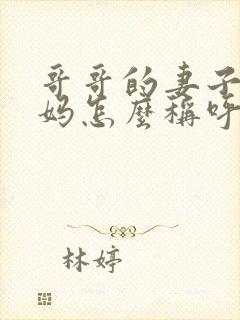 哥哥的妻子
妈怎麼稱呼
林婷